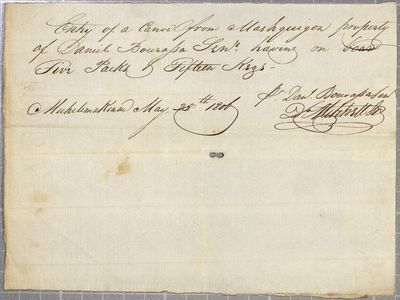 Entry of a Canoe from Mashquegon property
of Daniel Bourassa Senr. having on board
Five Packs & Fifteen Kegs -
Michilimakinac May 25th 1806
pr. Danl. Bourassa Senr
D. Mitchell Jr